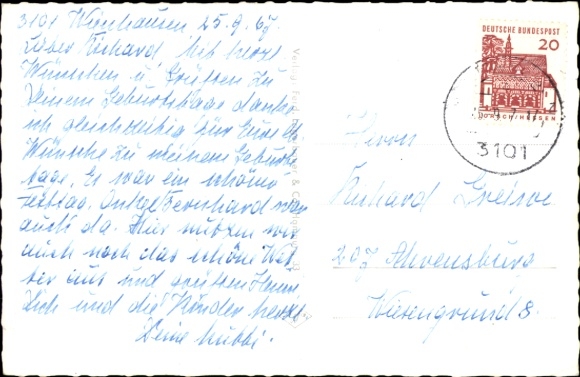 3101 Wienhausen 25.9.67.
Lieber Richard! Mit herzl.
Wünschen u. Grüssen zu
Deinem Geburtstage danke
ich gleichzeitig für Eure lb.
Wünsche zu meinem Geburts-
tage. Es war ein schöner
Festtag. Onkel Bernhard war
auch da. Hier nutzen wir
auch noch das schöne Wet-
ter aus und grüssen Hann
Dich und die Kinder herzl.
Deine
DEUTSCHE BUNDESPOST
20
LORSCH/HESSEN
3101
Herrn
Richard
207 Ahrensburg
Wiesengrund 8.
Verlag